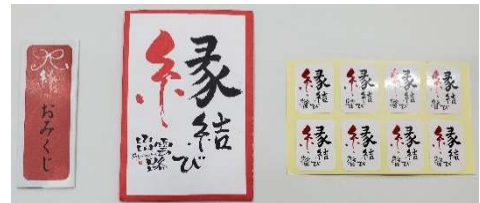 おみくじ
縁結び
縁結び
縁結び
縁結び
縁結び
縁結び
縁結び
縁結び
縁結び